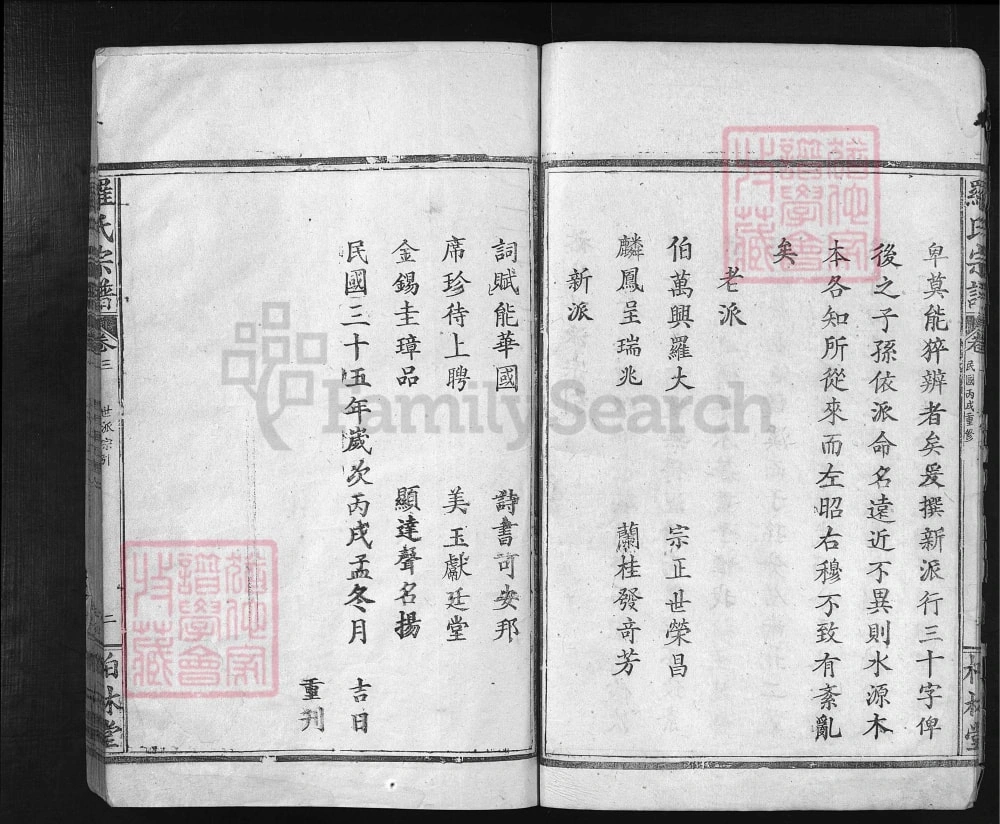 羅氏宗譜
卷
民國丙戌重修
卑莫能猝辨者矣爰撰新派行三十字俾
後之子孫依派命名遠近不異則水源木
本各知所從來而左昭右穆不致有紊亂
矣
老派
伯萬興羅大 宗正世榮昌
麟鳳呈瑞兆 蘭桂發奇芳
新派
詞賦能華國 詩書可安邦
席珍待上聘 美玉獻廷堂
金錫圭璋品 顯達聲名揚
民國三十五年歲次丙戌孟冬月 吉日
重刊
羅氏宗譜
卷三
世派宗引
三
柏林堂
FamilySearch
譜學會
收藏
譜學會
收藏